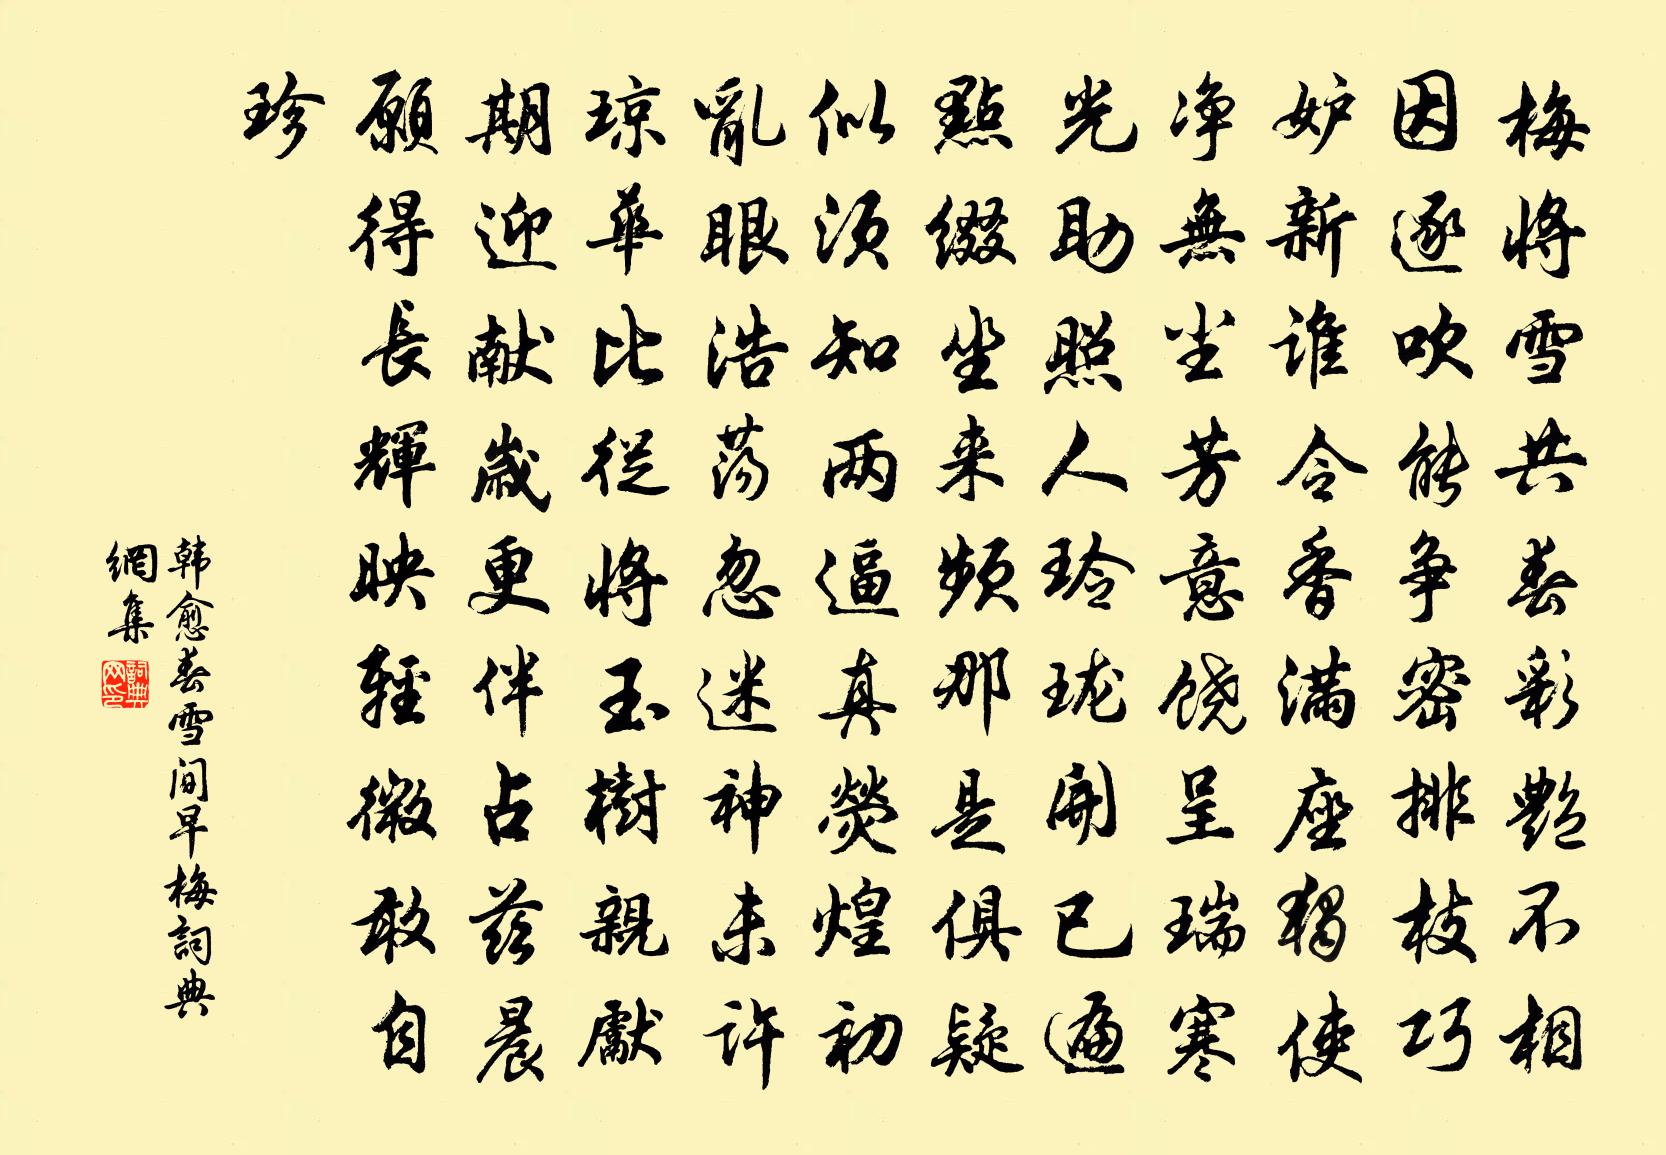 梅將雪共春彩艷不相
因逐吹能争密排枝巧
妒新谁令香满座獨使
净無尘芳意饶呈瑞寒
光助照人玲珑開已遍
點缀坐来频那是俱疑
似须知两逼真熒煌初
亂眼浩荡忽迷神未许
琼華比從將玉樹親獻
期迎献歲更伴占兹晨
願得長輝映輕微敢自
珍
韩愈春雪间早梅詞典
網集
詞典网印